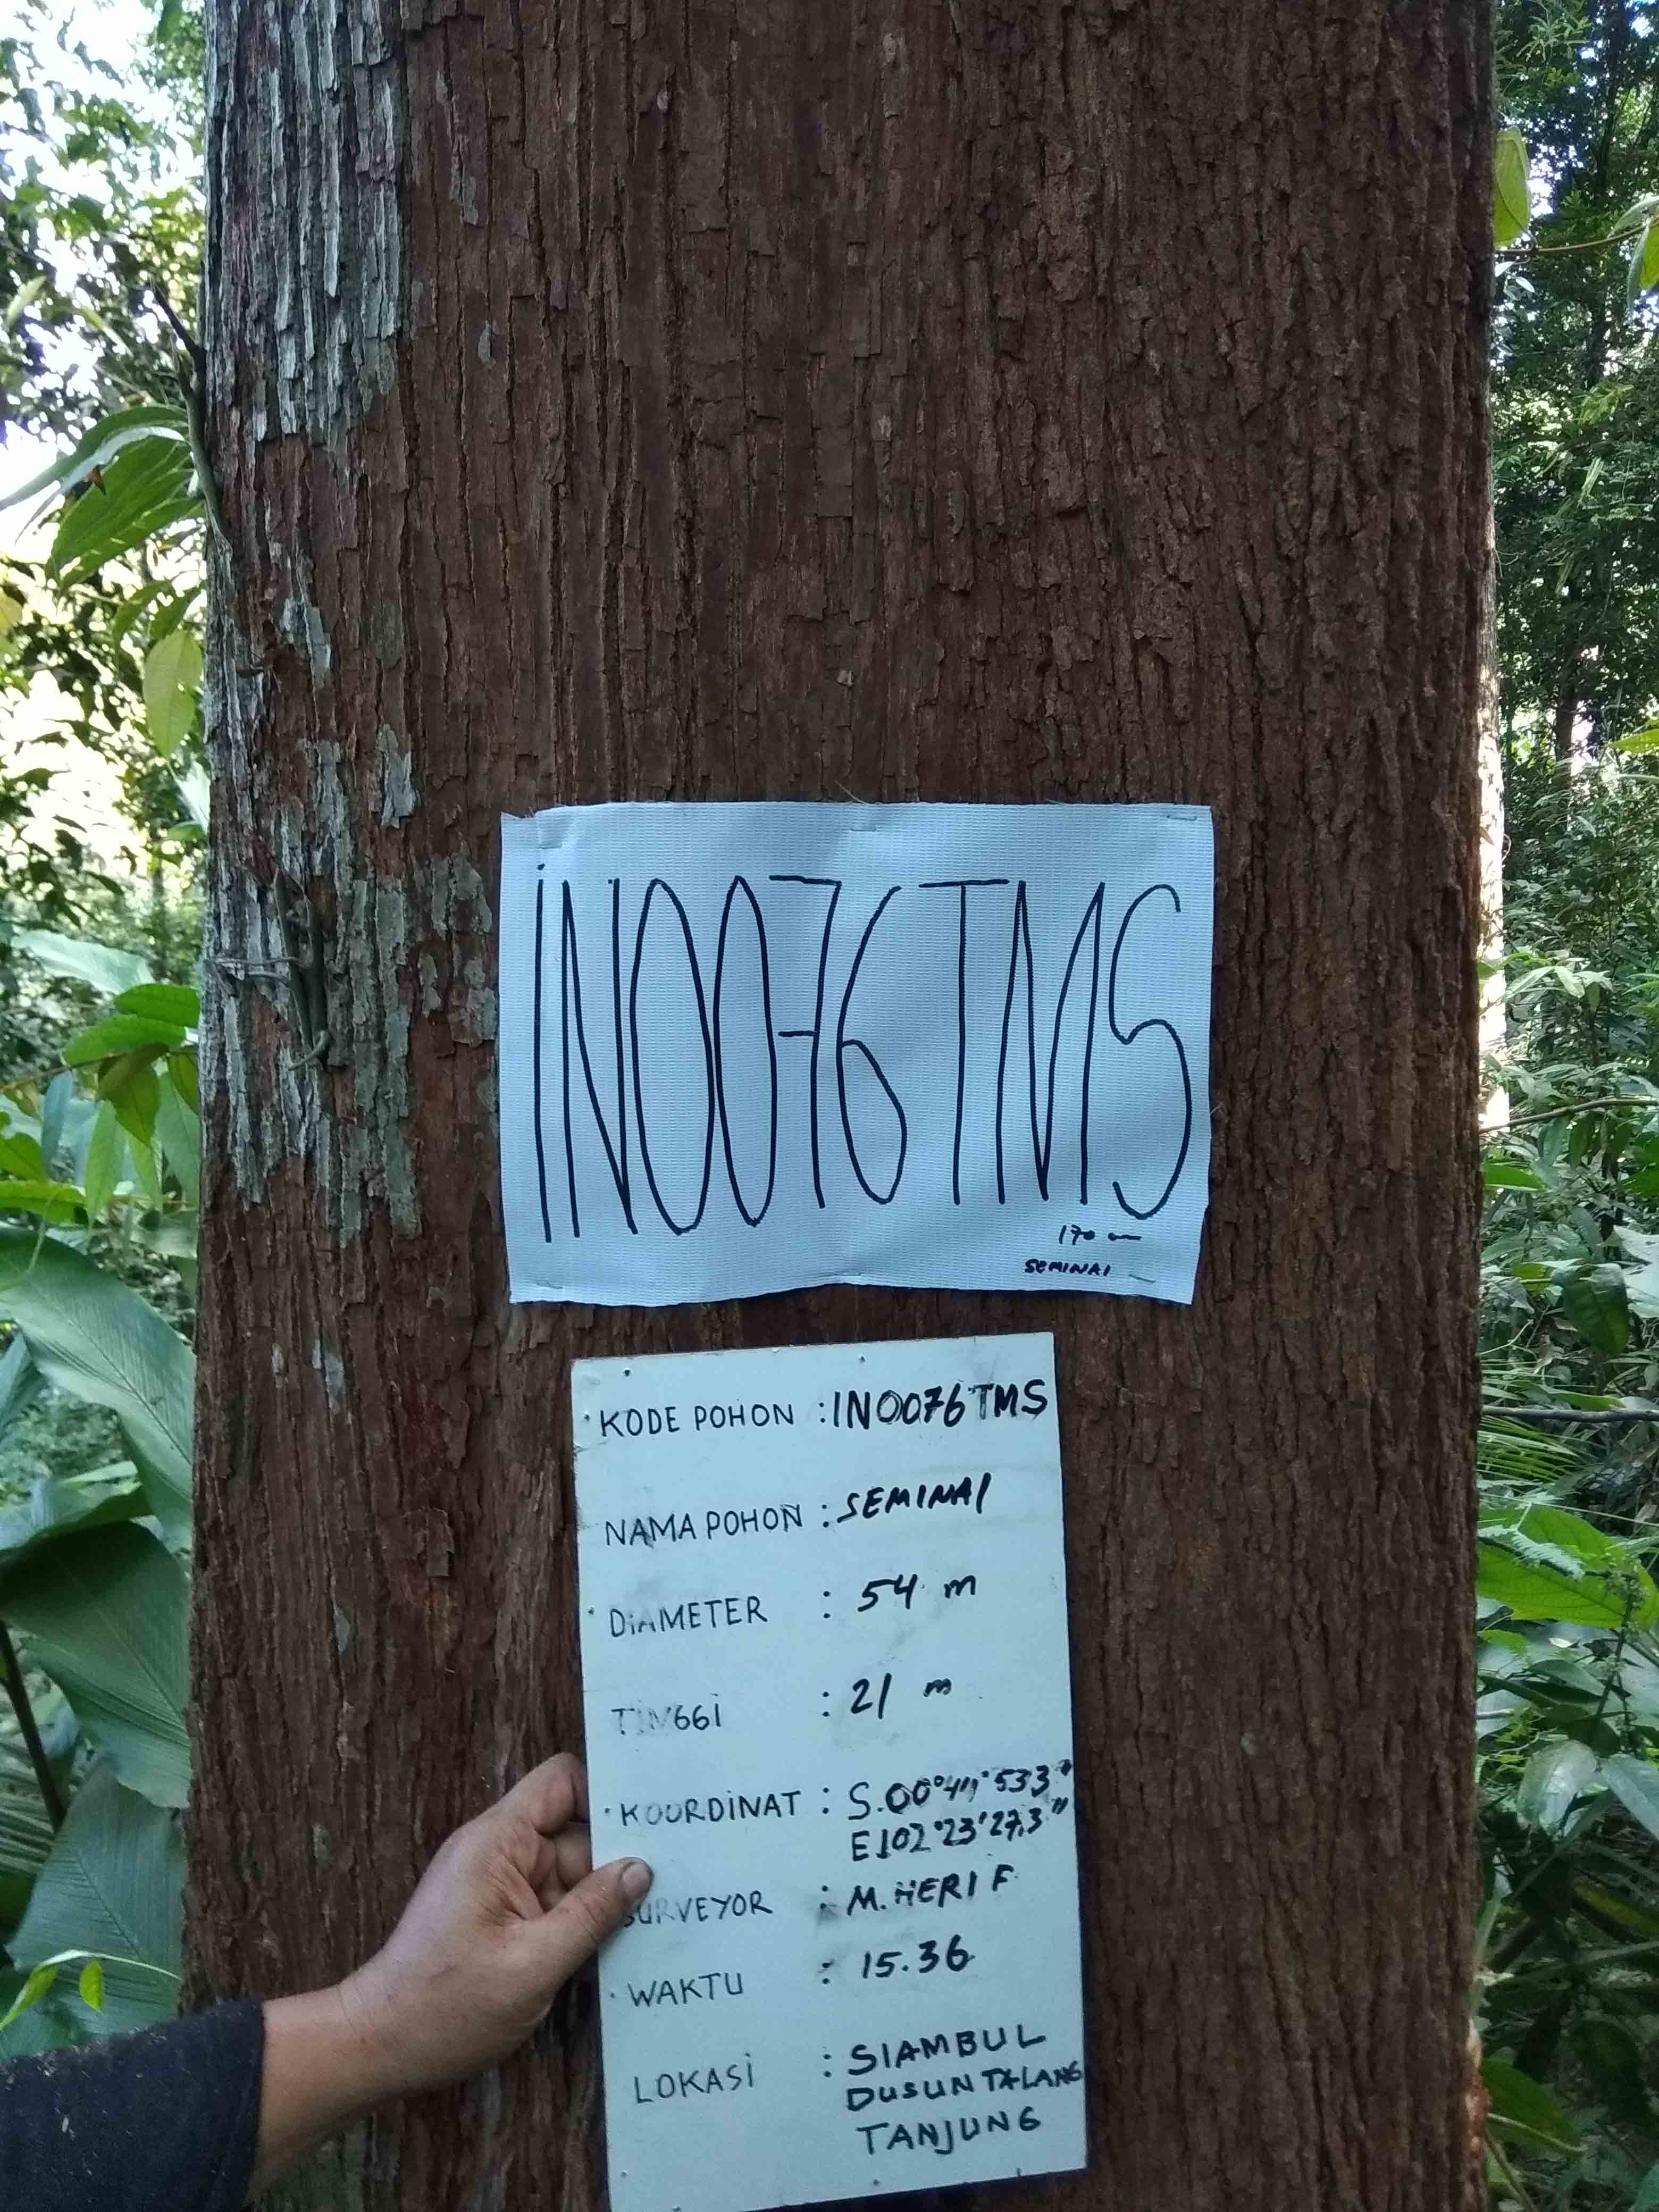 iN0076TMS
170 cm
SEMINAI
KODE POHON : IN0076TMS
NAMA POHON : SEMINAI
DiAMETER : 54 m
TiNGGi : 21 m
KOORDiNAT : S.00°44'533"
E102°23'27,3"
SURVEYOR : M. HERI F
WAKTU : 15.36
LOKASi : SIAMBUL
DUSUN TALANG
TANJUNG